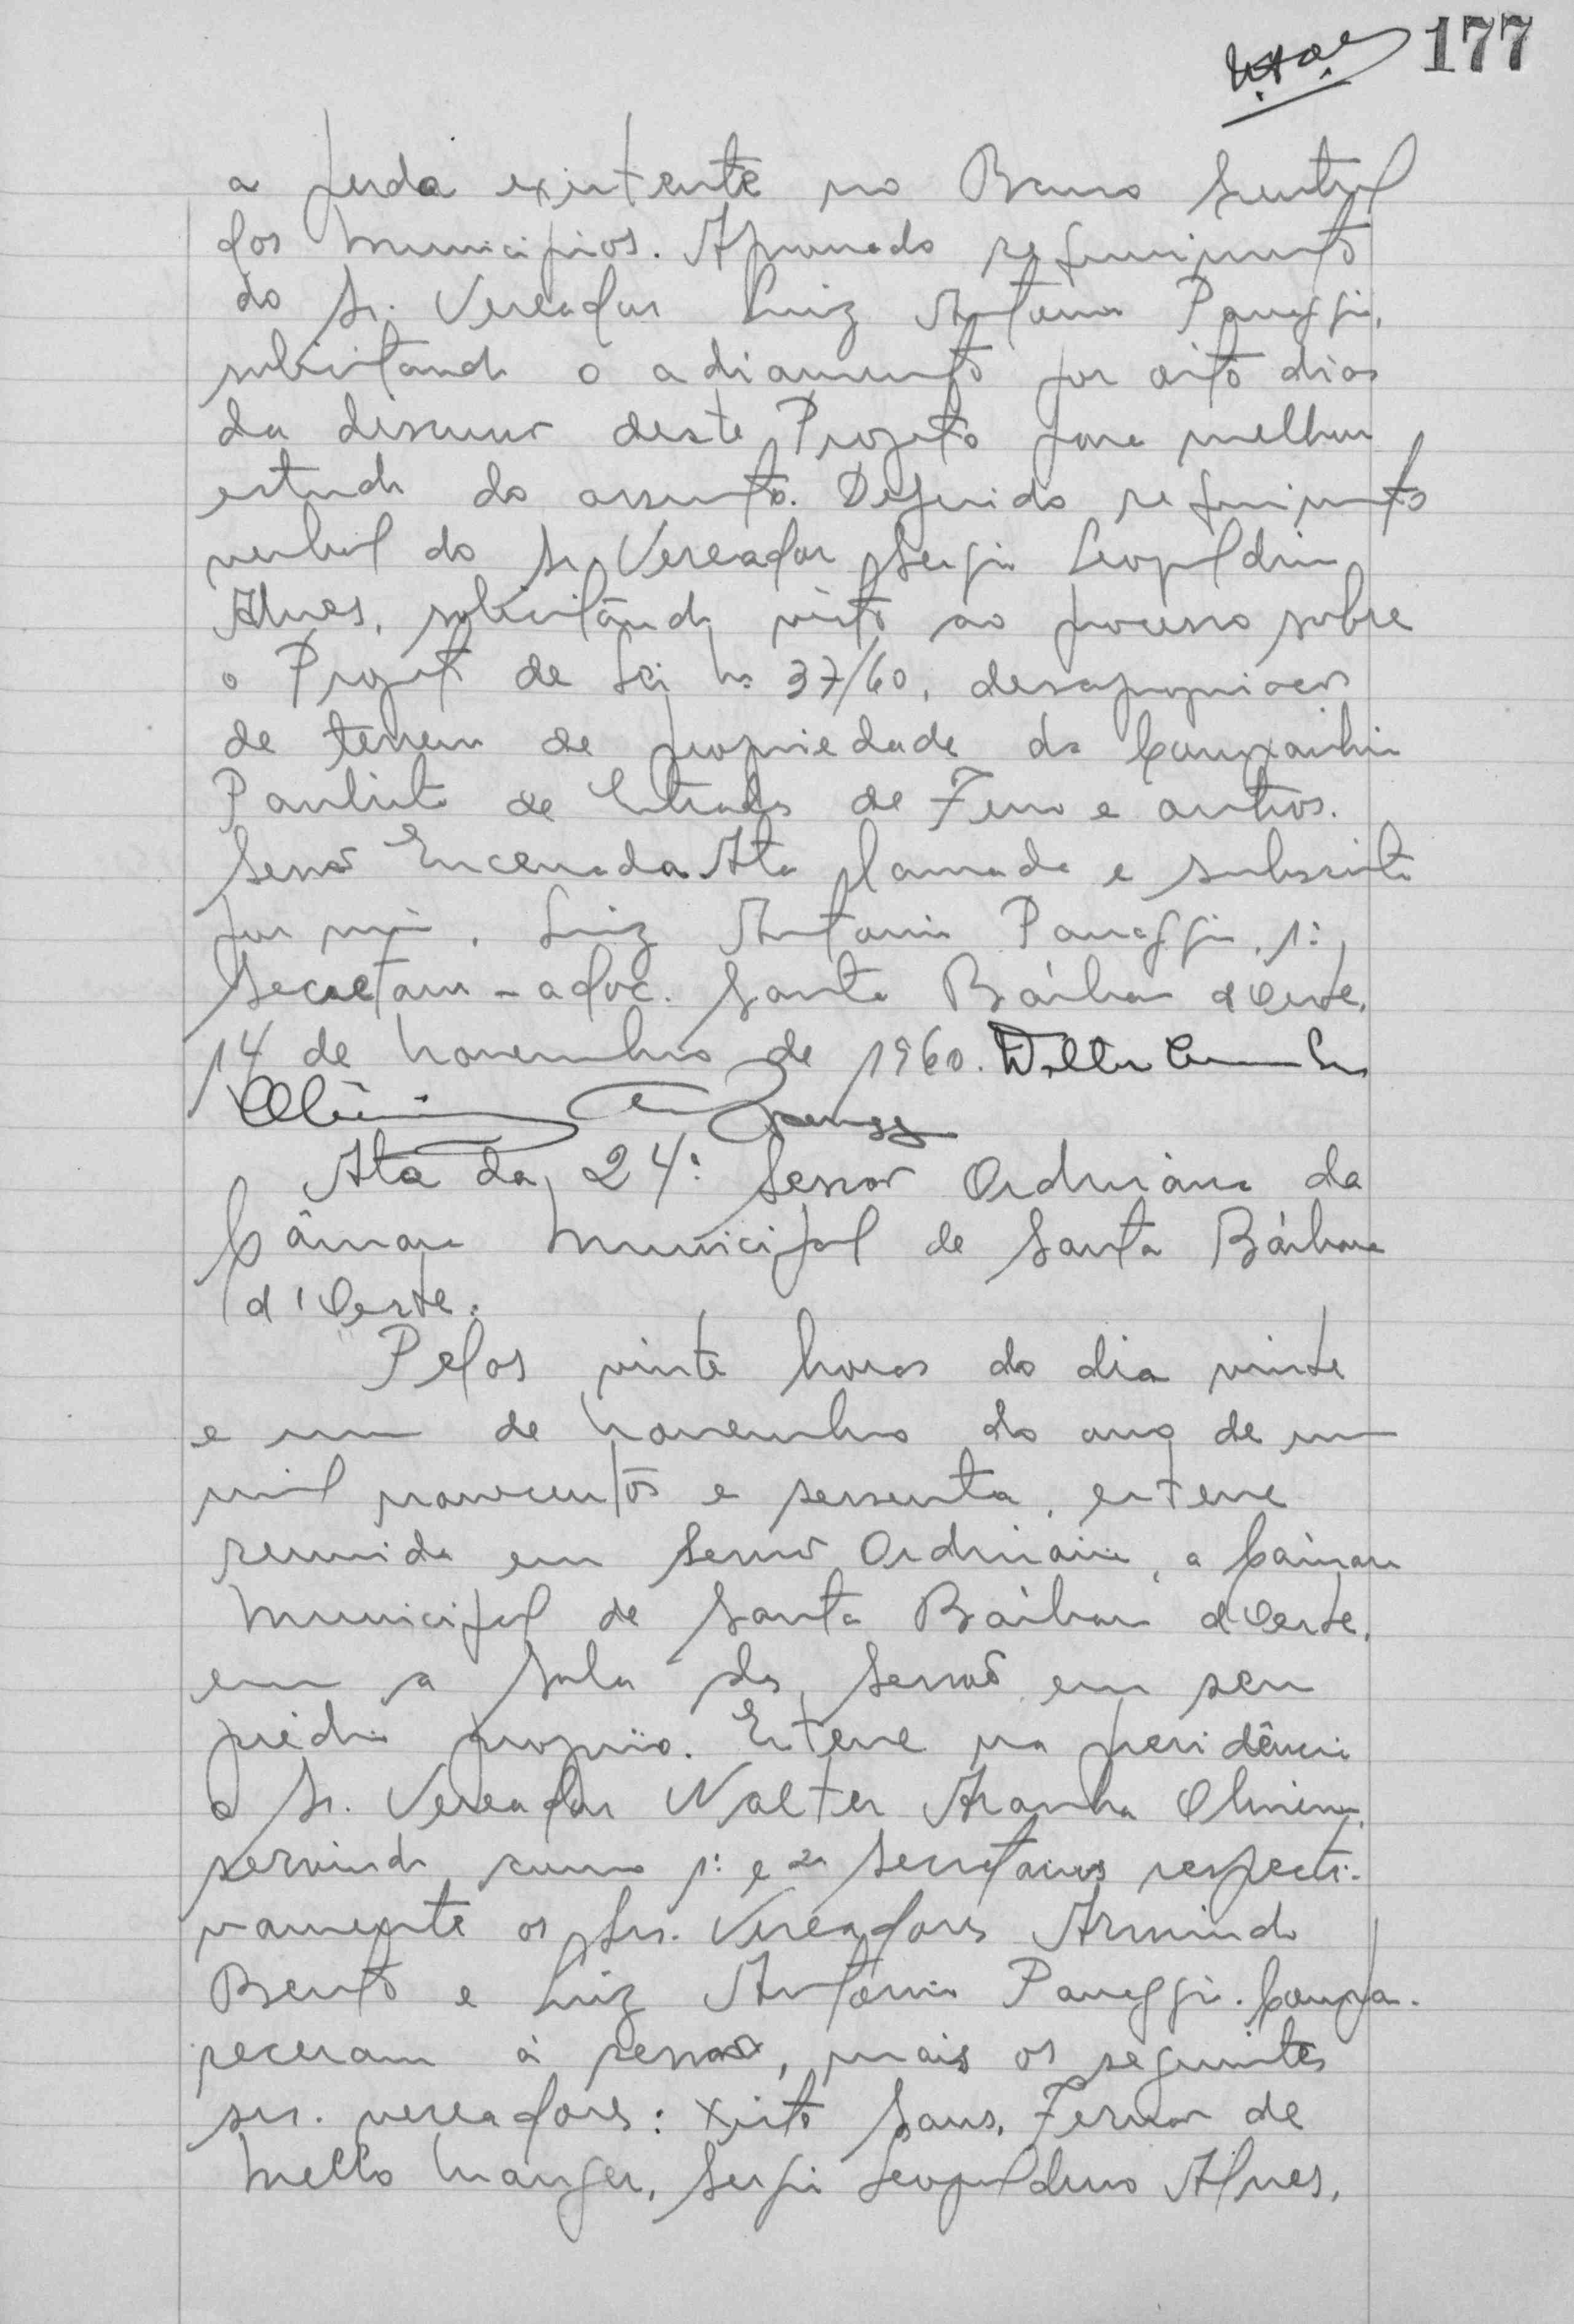 177
a perda existente no Banco Central
dos Municipios. Aprovado requerimento
do Sr. Vereador Luiz Antonio Paneggi,
solicitando o adiamento por oito dias
da discussão deste Projeto para melhor
estudo do assunto. Deferido requerimento
verbal do Sr. Vereador Sergio Leopoldino
Alves, solicitando visto ao processo sobre
o Projeto de Lei nº 37/60, desapropriação
de terreno de propriedade da Companhia
Paulista de Estradas de Ferro e outros.
Sessão Encerrada Ata lavrada e subscrita
por mim, Luiz Antonio Paneggi, 1º
Secretario - adoc. Santa Bárbara d'Oeste,
14 de novembro de 1960.
Ata da 24ª Sessão Ordinária da
Câmara Municipal de Santa Bárbara
d'Oeste.
Pelas vinte horas do dia vinte
e um de novembro do ano de um
mil novecentos e sessenta, esteve
reunida em Sessão Ordinária, a Câmara
Municipal de Santa Bárbara d'Oeste,
em a sala da Sessão em seu
prédio proprio. Esteve na presidência
o Sr. Vereador Walter Aranha Oliveira,
servindo como 1º e 2º Secretarios respecti-
vamente os Srs. Vereadores Armindo
Bento e Luiz Antônio Paneggi. Compa-
receram à sessão, mais os seguintes
srs. vereadores: Xisto Sans, Ferrer de
Mello Manger, Sergio Leopoldino Alves,